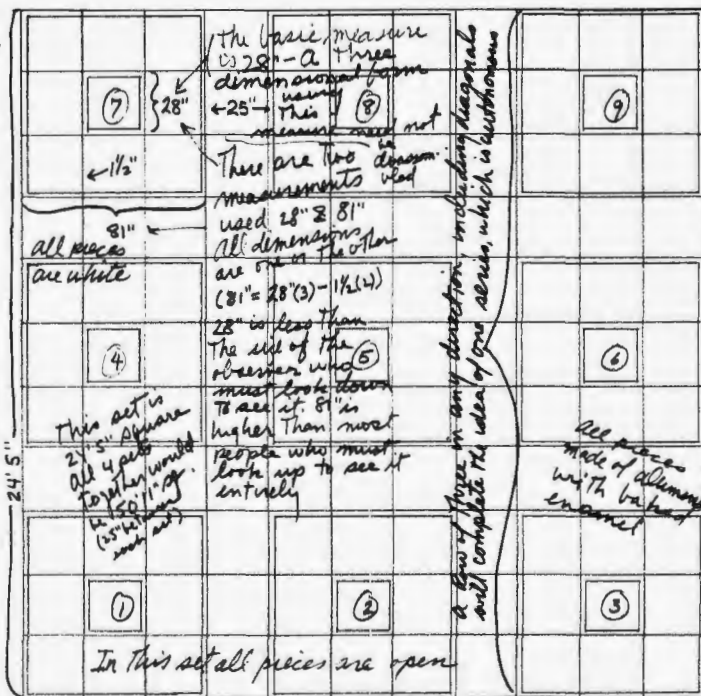 the basic measure
is 28" - a three
dimensional form
using
this
measure need not
be
disassem
bled
7
28"
←25"→
8
9
←1½"
There are two
measurements
used 28" & 81"
all dimensions
are one or the other
(81" = 28"(3) - 1½(2))
28" is less than
the
of the
observer who
must look down
to see it. 81" is
higher than most
people who must
look up to see it
entirely
81"
all pieces
are white
4
5
6
This set is
24' 5" square
all 4 sets
together would
be 50' 1" sq.
(25" between
each set)
24' 5"
a row of three in any direction, including diagonals
will complete the idea of one series, which is autonomous
all pieces
made of
with baked
enamel
1
2
3
In this set all pieces are open